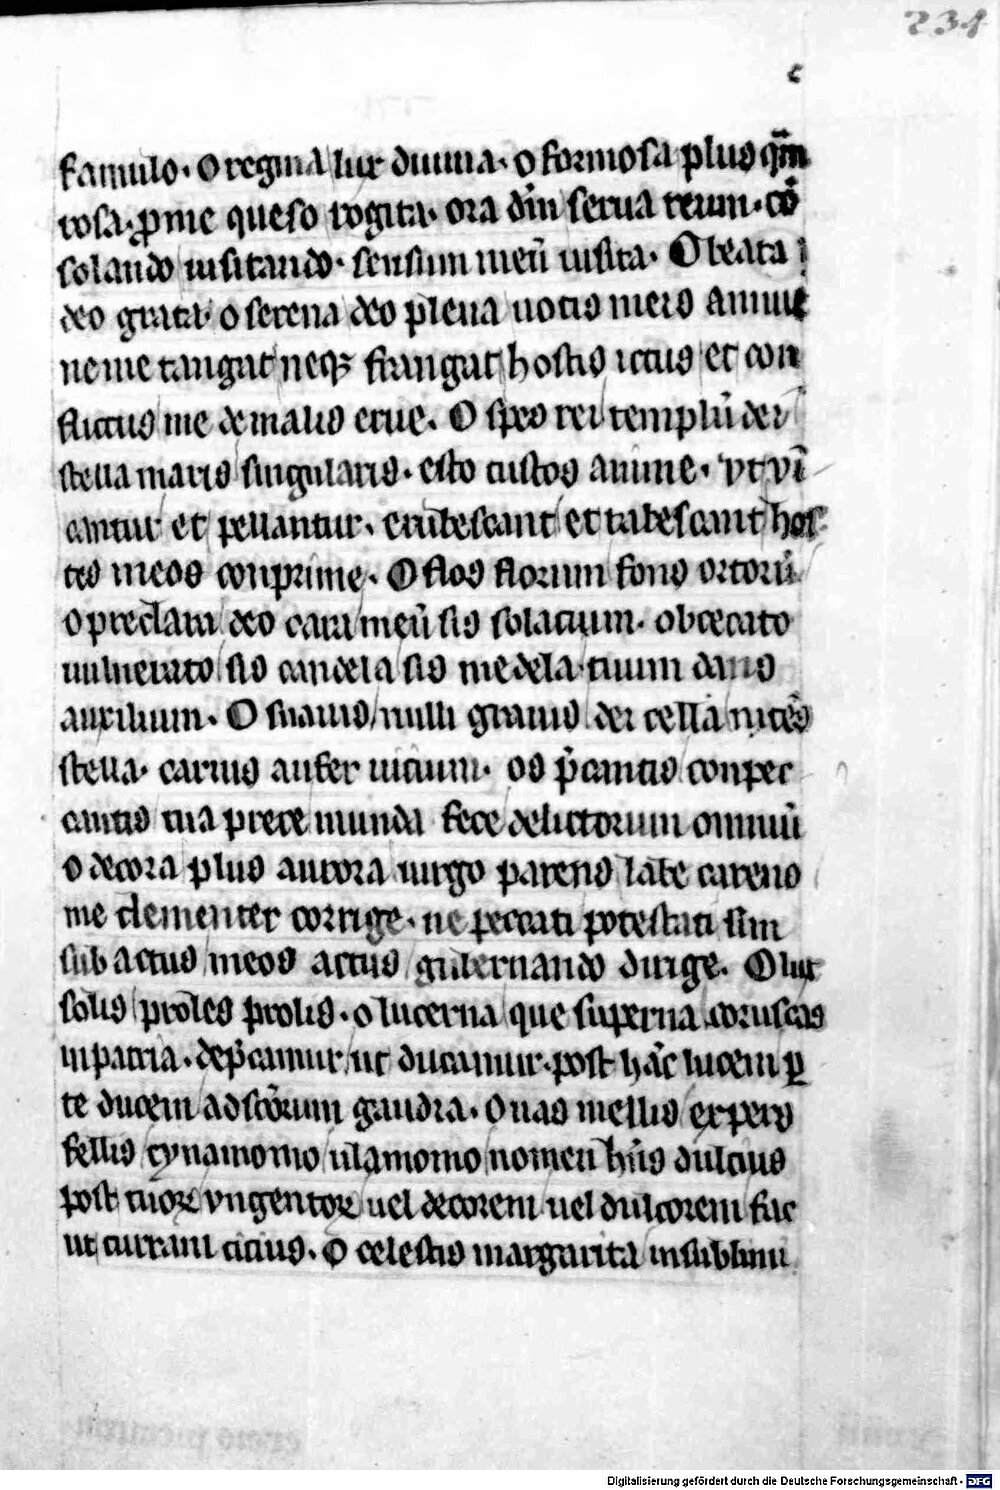 234
c
famulo. o regina lux diuina. o formosa plus qm̄
rosa. ꝓ me queso rogita. ora dn̄m serua reum. cō
solando uisitando. sensum meū uisita. O beata
deo grata. o serena deo plena uotis meis annue
ne me tangat neqꝫ frangat hostis ictus et con
flictus me de malis erue. O spes rei templū dei
stella maris singularis. esto custos anime. vt vī
cantur et pellantur. erubescant et tabescant hos
tes meos conprime. O flos florum fons ortorū
o preclara deo cara meū sis solacium. obcecato
uulnerato sis candela sis medela tuum dans
auxilium. O suauis nulli grauis dei cella nitēs
stella. carius aufer uicium. os p̄cantis conpec
cantis tua prece munda fece delictorum omniū
o decora plus aurora uirgo parens labe carens
me clementer corrige. ne peccati potestati sim
sub actus meos actus gubernando dirige. O lux
solis proles prolis. o lucerna que superna coruscas
in patria. dep̄camur ut ducamur. post hāc lucem ꝑ
te ducem ad scōrum gaudia. O uas mellis expers
fellis cynamomo ul amomo nomen hn̄s dulcius
post tuoꝝ vngentoꝝ uel decorem uel dulcorem fac
ut curram cicius. o celestis margarita in sublimi
Digitalisierung gefördert durch die Deutsche Forschungsgemeinschaft - DFG